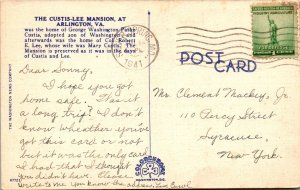 THE CUSTIS-LEE MANSION, AT
ARLINGTON, VA.
was the home of George Washington Parke
Custis, adopted son of Washington and
afterwards was the home of Col. Robert
E. Lee, whose wife was Mary Custis. The
Mansion is preserved as it was in the days
of Custis and Lee.
POST
CARD
1941
Dear Sonny,
I hope you got
home safe. Was it
a long trip? I don't
know wheather you've
got this card or not
but it was the only card
I had that I thought
you didn't have. Please
write to me you know the address, Love Carol
THE WASHINGTON NEWS COMPANY
Mr. Clement Mackey, Jr.
110 Percy Street
Syracuse,
New York.